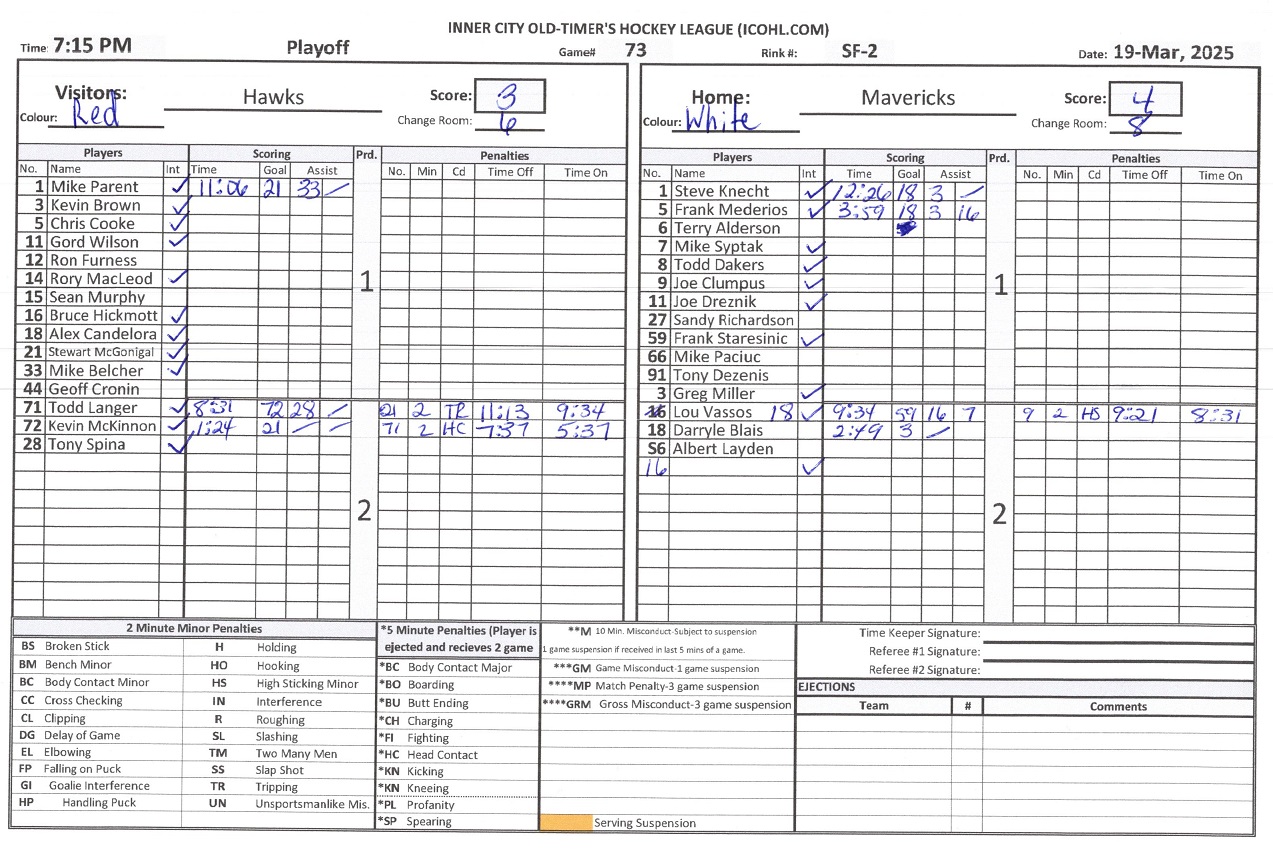 INNER CITY OLD-TIMER'S HOCKEY LEAGUE (ICOHL.COM)
Time: 7:15 PM Playoff Game# 73 Rink #: SF-2 Date: 19-Mar, 2025
Visitors: Hawks Score: 3
Colour: Red Change Room: 6
Players Scoring Prd. Penalties
No. Name Int Time Goal Assist No. Min Cd Time Off Time On
1 Mike Parent ✓ 11:06 21 33 —
3 Kevin Brown ✓
5 Chris Cooke ✓
11 Gord Wilson ✓
12 Ron Furness
14 Rory MacLeod ✓
1
15 Sean Murphy
16 Bruce Hickmott ✓
18 Alex Candelora ✓
21 Stewart McGonigal ✓
33 Mike Belcher ✓
44 Geoff Cronin
71 Todd Langer ✓ 8:31 72 28 — 21 2 TR 11:13 9:34
72 Kevin McKinnon ✓ 1:24 21 — — 71 2 HC 7:37 5:37
28 Tony Spina ✓
2
Home: Mavericks Score: 4
Colour: White Change Room: 8
Players Scoring Prd. Penalties
No. Name Int Time Goal Assist No. Min Cd Time Off Time On
1 Steve Knecht ✓ 12:26 18 3 —
5 Frank Mederios ✓ 3:59 18 3 16
6 Terry Alderson
7 Mike Syptak ✓
8 Todd Dakers ✓
9 Joe Clumpus ✓
1
11 Joe Dreznik ✓
27 Sandy Richardson
59 Frank Staresinic ✓
66 Mike Paciuc
91 Tony Dezenis
3 Greg Miller ✓
16 Lou Vassos 18 ✓ 9:34 59 16 7 9 2 HS 9:21 8:31
18 Darryle Blais 2:49 3 —
S6 Albert Layden
16 ✓
2
2 Minute Minor Penalties
BS Broken Stick H Holding
BM Bench Minor HO Hooking
BC Body Contact Minor HS High Sticking Minor
CC Cross Checking IN Interference
CL Clipping R Roughing
DG Delay of Game SL Slashing
EL Elbowing TM Two Many Men
FP Falling on Puck SS Slap Shot
GI Goalie Interference TR Tripping
HP Handling Puck UN Unsportsmanlike Mis.
*5 Minute Penalties (Player is
ejected and recieves 2 game
*BC Body Contact Major
*BO Boarding
*BU Butt Ending
*CH Charging
*FI Fighting
*HC Head Contact
*KN Kicking
*KN Kneeing
*PL Profanity
*SP Spearing
**M 10 Min. Misconduct-Subject to suspension
1 game suspension if received in last 5 mins of a game.
***GM Game Misconduct-1 game suspension
****MP Match Penalty-3 game suspension
****GRM Gross Misconduct-3 game suspension
Serving Suspension
Time Keeper Signature:
Referee #1 Signature:
Referee #2 Signature:
EJECTIONS
Team # Comments